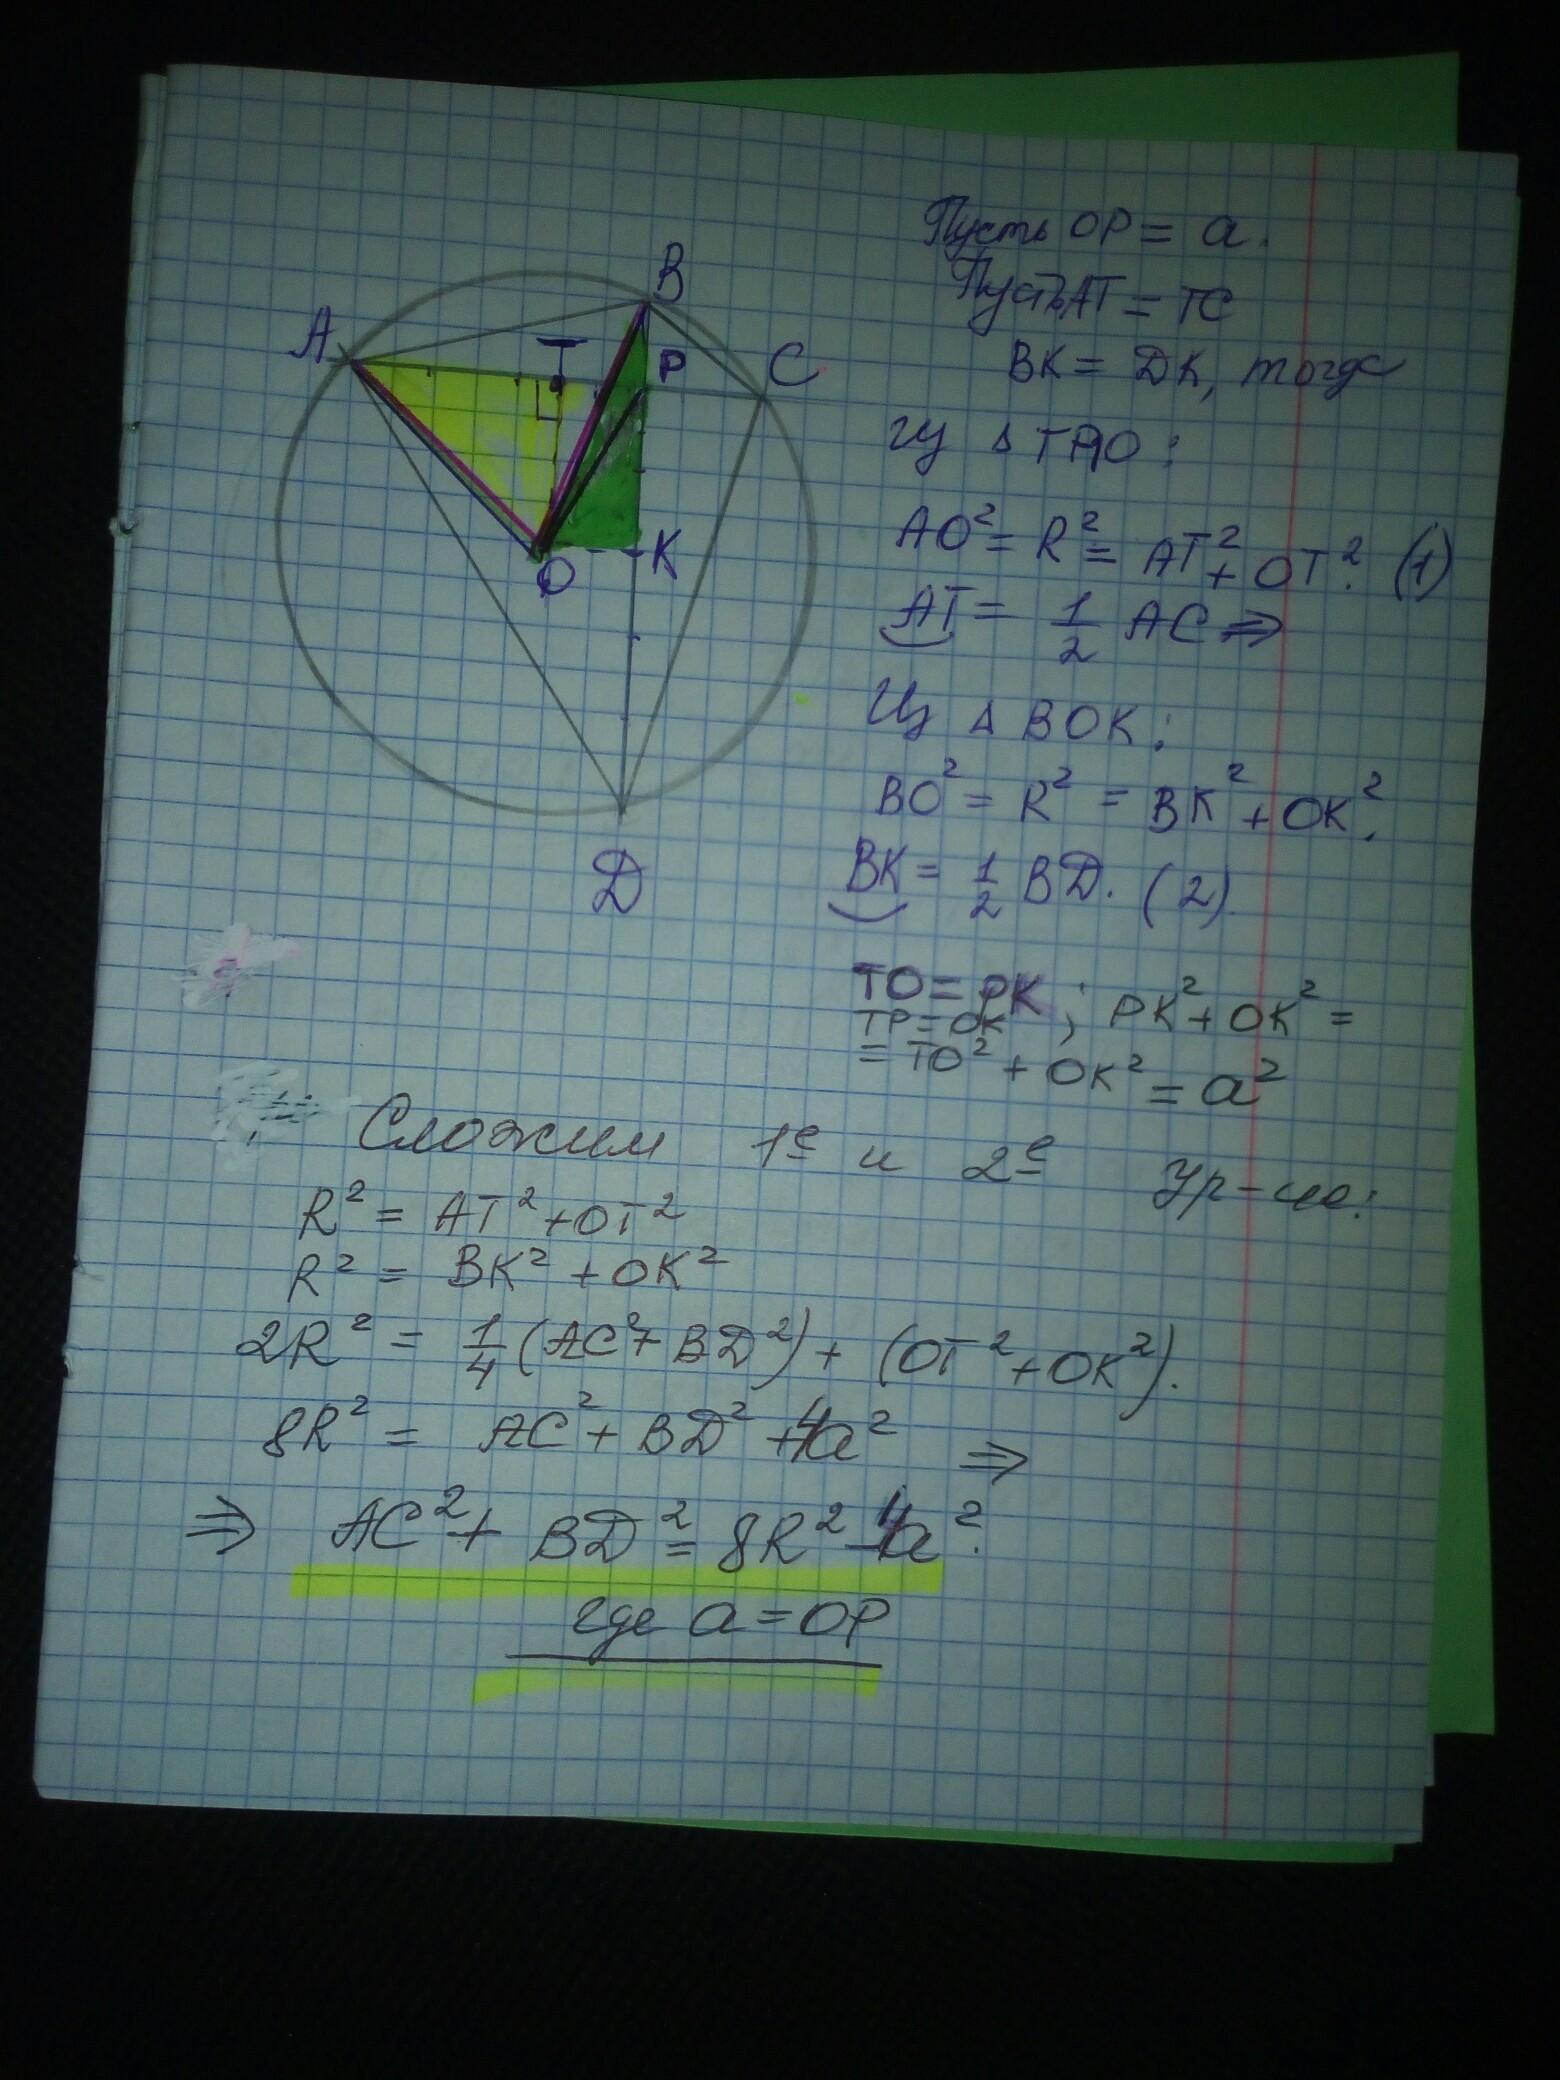 B
A
T
P
C
O
K
D
Пусть OP = a.
Пусть AT = TC
BK = DK, тогда
из Δ TAO:
AO² = R² = AT² + OT². (1)
AT = 1/2 AC ⇒
Из Δ BOK:
BO² = R² = BK² + OK².
BK = 1/2 BD. (2)
TO = PK ; PK² + OK² =
TP = OK
= TO² + OK² = a²
Сложим 1е и 2е ур-ие:
R² = AT² + OT²
R² = BK² + OK²
2R² = 1/4 (AC² + BD²) + (OT² + OK²).
8R² = AC² + BD² + 4a² ⇒
⇒ AC² + BD² = 8R² - 4a².
где a = OP